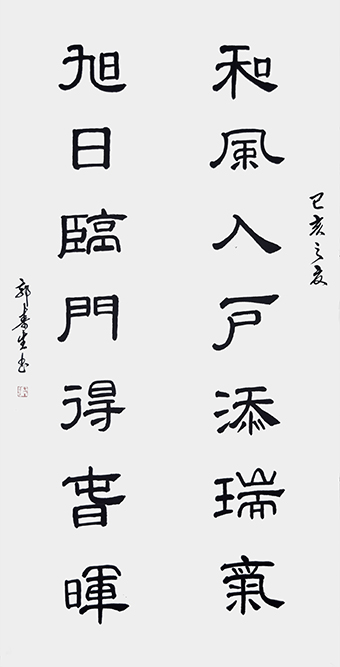 己亥之夏
和風入戶添瑞氣
旭日臨門得春暉
郭春生书